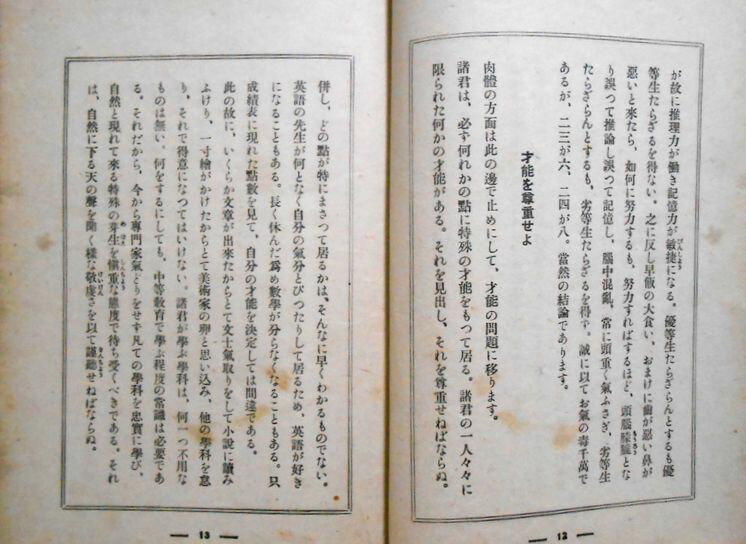 が故に推理力が働き記憶力が敏捷になる。優等生たらざらんとするも優
等生たらざるを得ない。之に反し早飯の大食い、おまけに齒が惡い鼻が
惡いと來たら、如何に努力するも、努力すればするほど、頭腦朦朧とな
り誤つて推論し誤つて記憶し、腦中混亂、常に頭重く氣ふさぎ、劣等生
たらざらんとするも、劣等生たらざるを得ず。誠に以てお氣の毒千萬で
あるが、二三が六、二四が八。當然の結論であります。
才能を尊重せよ
肉體の方面は此の邊で止めにして、才能の問題に移ります。
諸君は、必ず何れかの點に特殊の才能をもつて居る。諸君の一人々々に
限られた何かの才能がある。それを見出し、それを尊重せねばならぬ。
12
併し、どの點が特にまさつて居るかは、そんなに早くわかるものでない。
英語の先生が何となく自分の氣分とぴつたりして居るため、英語が好き
になることもある。長く休んだ爲め數學が分らなくなることもある。只
成績表に現れた點數を見て、自分の才能を決定しては間違である。
此の故に、いくらか文章が出來たからとて文士氣取りをして小説に讀み
ふけり、一寸繪がかけたからとて美術家の卵と思い込み、他の學科を怠
り、それで得意になつてはいけない。諸君が學ぶ學科は、何一つ不用な
ものは無い、何をするにしても、中等教育で學ぶ程度の常識は必要であ
る。それだから、今から專門家氣どりをせす凡ての學科を忠實に學び、
自然と現れて來る特殊の芽生を愼重な態度で待ち受くべきである。それ
は、自然に下る天の聲を聞く樣な敬虔さを以て謹聽せねばならぬ。
13